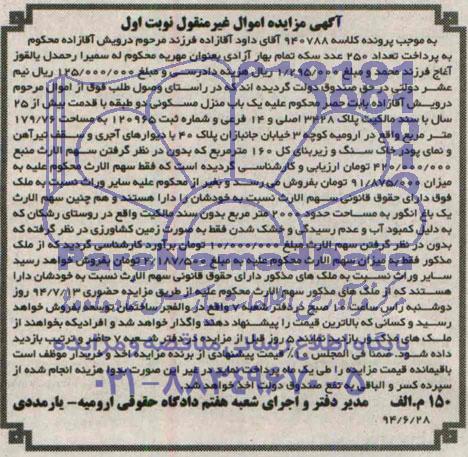 آگهی مزایده اموال غیرمنقول نوبت اول
به موجب پرونده کلاسه ۹۴۰۷۸۸ آقای داود آقازاده فرزند مرحوم درویش آقازاده محکوم
به پرداخت تعداد ۲۵۰ عدد سکه تمام بهار آزادی بعنوان مهریه محکوم له سمیرا رحمدل یالقوز
آغاج فرزند محمد و مبلغ ۱/۲۹۵/۰۰۰ ریال هزینه دادرسی و مبلغ ۱۲۵/۰۰۰/۰۰۰ ریال نیم
عشر دولتی در حق صندوق دولت گردیده اند که در راستای وصول طلب فوق از اموال مرحوم
درویش آقازاده بابت حصر محکوم علیه یک باب منزل مسکونی دو طبقه با قدمت بیش از ۲۵
سال با سند مالکیت پلاک ۳۳۶۸ اصلی و ۱۴ فرعی و شماره ثبت ۱۲۰۹۶۵ به مساحت ۱۷۹/۷۶
متر مربع واقع در ارومیه کوچه ۳ خیابان جانبازان پلاک ۴۰ با دیوارهای آجری و سقف تیرآهن
و نمای پودر خاک سنگ و زیربنای کل ۱۶۰ مترمربع که بدون در نظر گرفتن سهم الارث منبع
تومان ارزیابی و کارشناسی گردیده است که فقط سهم الارث محکوم علیه به
میزان ۹۱/۸۷۵/۰۰۰ تومان بفروش می رسد و بغیر از محکوم علیه سایر وراث نسبت به ملک
فوق دارای حقوق قانونی سهم الارث نسبت به خودشان را دارا هستند و هم چنین سهم الارث
یک باغ انگور به مساحت حدود ۲۰۰۰ متر مربع بدون سند مالکیت واقع در روستای ریگان که
به دلیل کمبود آب و عدم رسیدگی و خشک شدن فقط به صورت زمین کشاورزی در نظر گرفته که
بدون در نظر گرفتن سهم الارث مبلغ تومان برآورد کارشناسی گردید که از ملک
مذکور فقط به میزان سهم الارث محکوم علیه به مبلغ تومان بفروش خواهد رسید
سایر وراث نسبت به ملک های مذکور دارای حقوق قانونی سهم الارث نسبت به خودشان دارا
هستند که از ملک های مذکور سهم الارث محکوم علیه از طریق مزایده حضوری ۹۴/۷/۱۳ روز
دوشنبه راس ساعت صبح در دفتر شعبه واقع در والفجر ساختمان توسعه بفروش خواهد
رسید و کسانی که بالاترین قیمت را پیشنهاد دهند واگذار خواهد شد و افرادیکه بخواهند از
ملک های مذکور بازدید نمایند ۵ روز قبل از مزایده به این شعبه مراجعه تا ترتیب بازدید
داده شود. ضمنا فی المجلس ۱۰٪ قیمت پیشنهادی از برنده مزایده اخذ و خریدار موظف است
باقیمانده قیمت مزایده را طی یک ماه پرداخت نماید در غیر این صورت بدوا هزینه انجام شده از
سپرده کسر و الباقی به نفع صندوق دولت اخذ خواهد شد.
۱۵۰ م.الف مدیر دفتر و اجرای شعبه هفتم دادگاه حقوقی ارومیه- یارمددی
۹۴/۶/۲۸
پایگاه اطلاع رسانی مناقصه و مزایده
۰۲۱-۸۸۳۴۹۶۷۰-۵